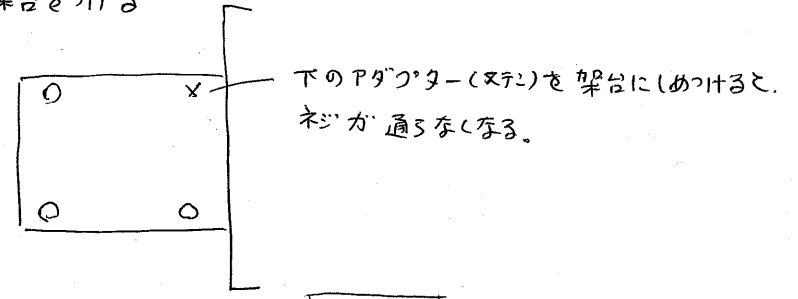 架台をつける
下のアダプター(ステン)を架台にしめつけると.
ネジが通らなくなる。